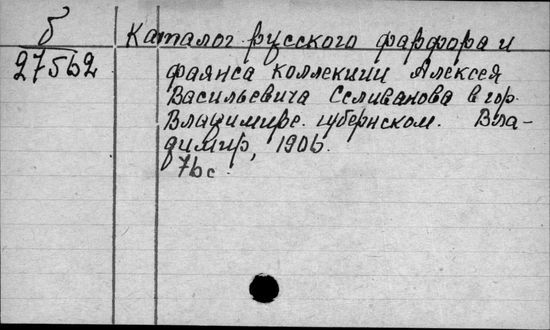 б
27562
Каталог русского фарфора и
фаянса коллекции Алексея
Васильевича Селиванова в гор.
Владимире. губернском. Вла-
димир, 1906.
76 с.